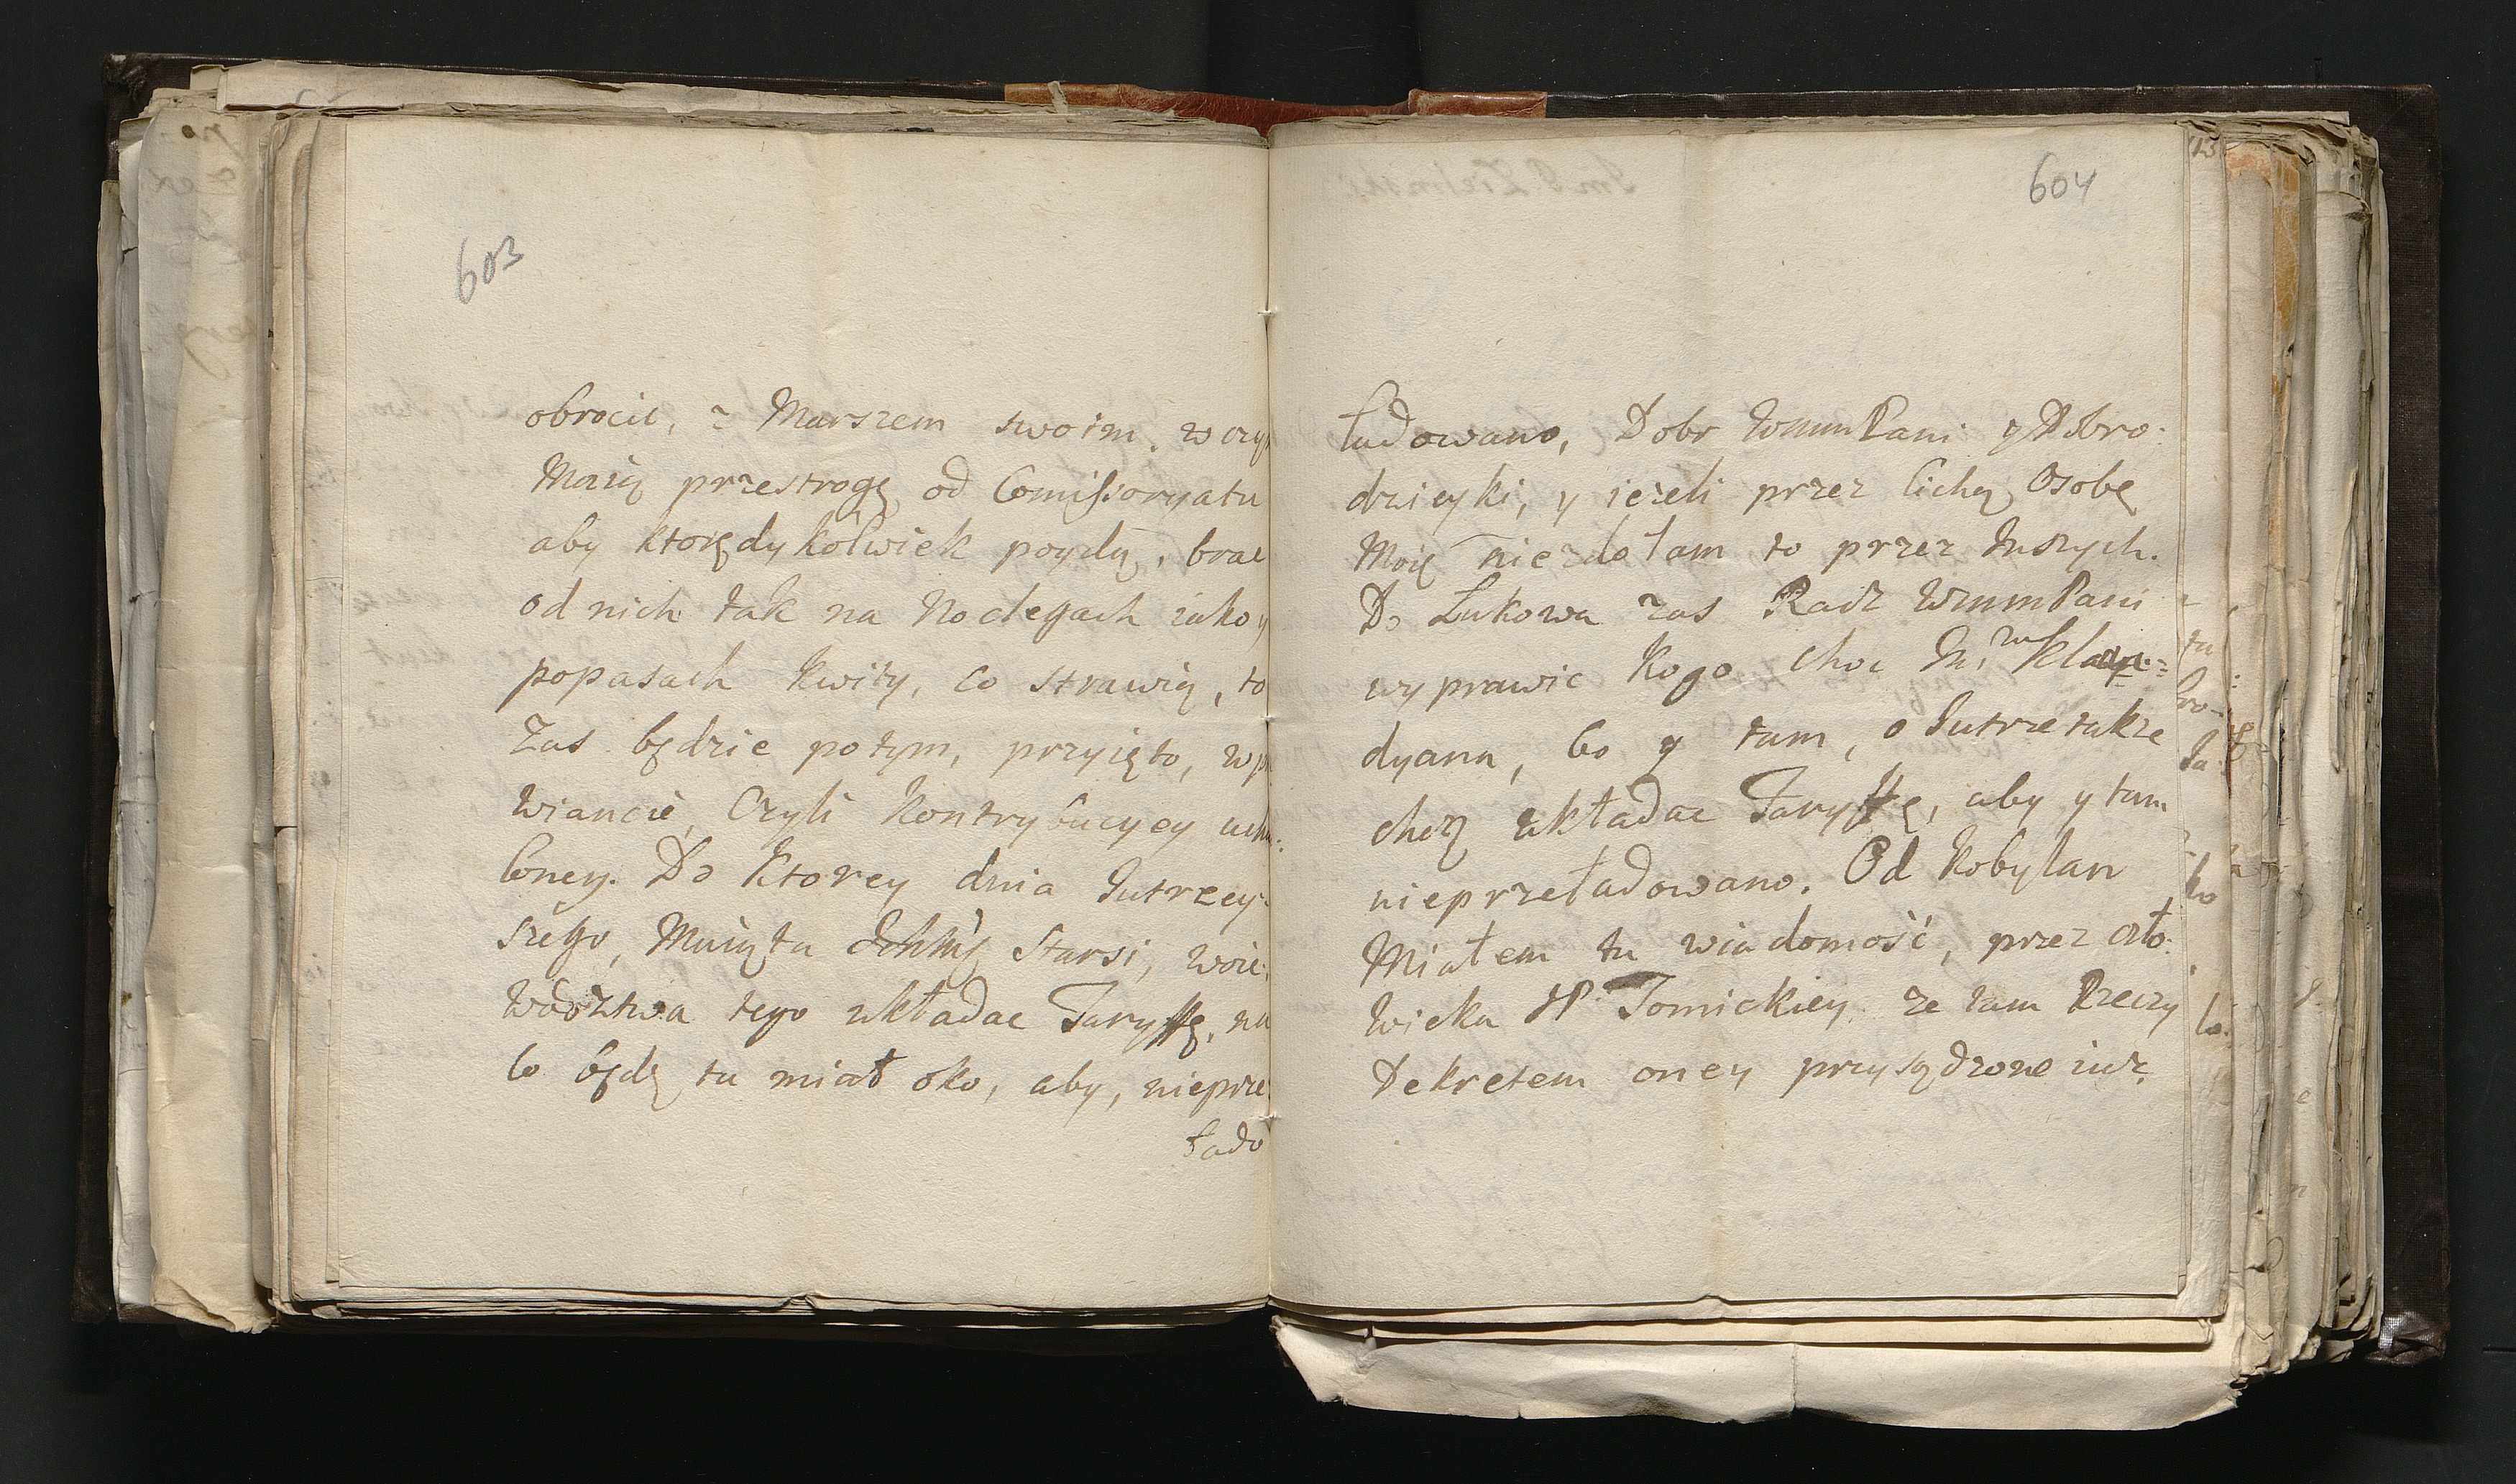 603
obrocic, z Marszem swoim, w czy
Maią przestrogę od Comissoryatu
aby ktorędykolwiek poydą, brac
od nich tak na Noclegach iako y
popasach kwity, co strawią, to
Zas będzie potym, przyięto, w p
wiancie, Czyli Kontrybucyey uch
loney. Do ktorey dnia Jutrzey:
szego, Maią tu Starsi, woie:
wodztwa tego układac Taryffę, na
co będę tu miał oko, aby, nieprze
łado
604
ładowano, Dobr WmmPani y Dobro:
dzieyki, y ieżeli przez lichą Osobę
Moię niezdołam to przez Inszych.
Do Łukowa zas Radz WmmPani
wyprawic kogo choc
dyana, bo y tam, o Jutrze także
chcą układac Taryffę, aby y tam
nieprzeładowano. Od Kobylan
Miałem tu wiadomość, przez czło:
wieka JP. Tomickiey, że tam Rzeczy
Dekretem oney przysądzone iuż